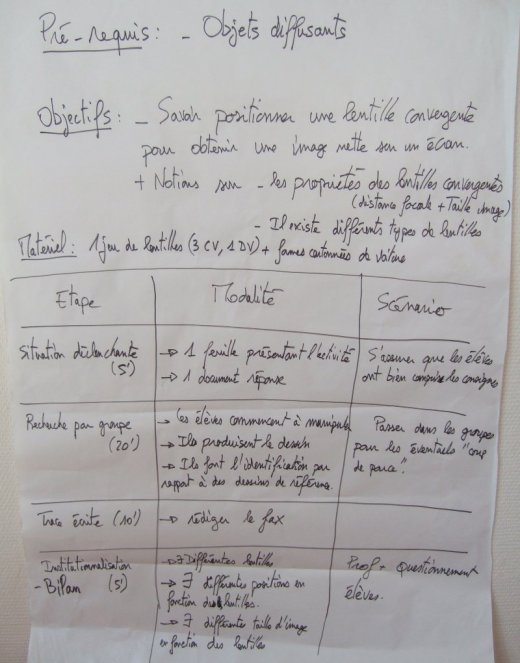 Pré-requis : - Objets diffusants
Objectifs : - Savoir positionner une lentille convergente
pour obtenir une image nette sur un écran.
+ Notions sur - les propriétés des lentilles convergentes
(distance focale + Taille image)
- Il existe différents types de lentilles
Matériel : 1 jeu de lentilles (3 CV, 1 DV) + formes cartonnées de voiture
Etape
Modalité
Scénario
Situation déclenchante
(5')
→ 1 feuille présentant l'activité
→ 1 document réponse
S'assurer que les élèves
ont bien compris les consignes
Recherche par groupe
(20')
→ Les élèves commencent à manipuler
→ Ils produisent le dessin
→ Ils font l'identification par
rapport à des dessins de référence.
Passer dans les groupes
pour les éventuels "coup
de pouce".
Trace écrite (10')
→ rédiger le fax
Institutionnalisation
- Bilan (5')
→ ∃ Différentes lentilles
→ ∃ différentes positions en
fonction des lentilles.
→ ∃ différente taille d'image
en fonction des lentilles
Prof + questionnement
élèves.